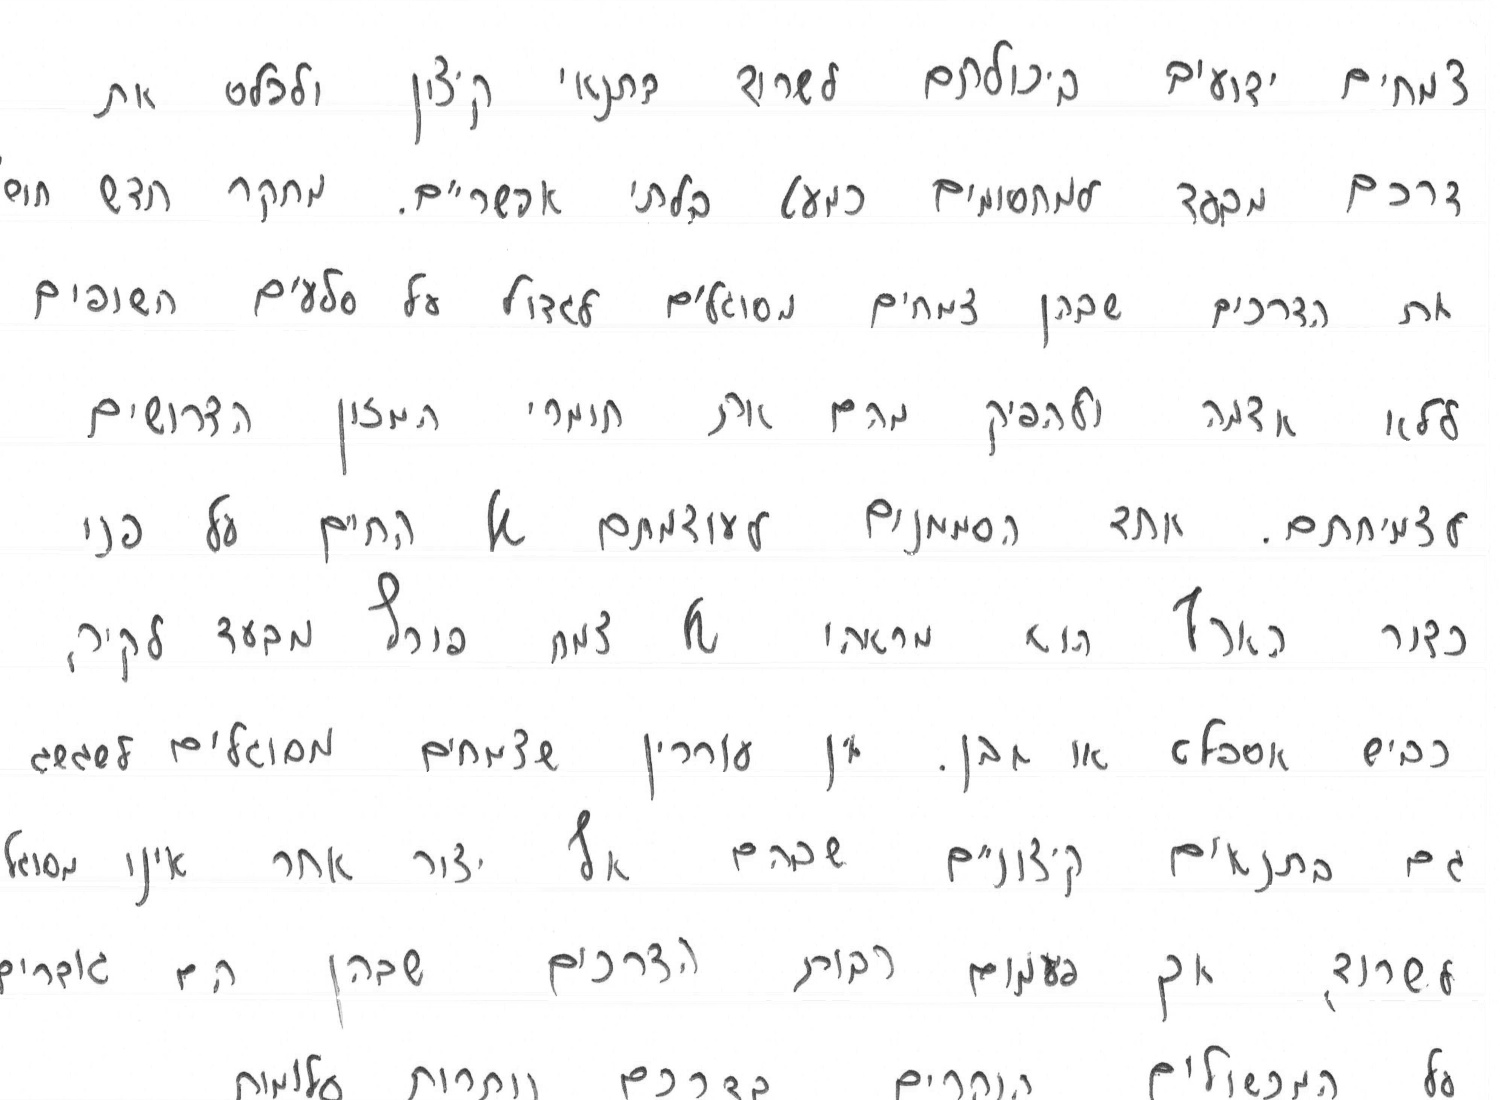 צמחים ידועים ביכולתם לשרוד בתנאי קיצון ולפלס את
דרכם מבעד למחסומים כמעט בלתי אפשריים. מחקר חדש חוש
את הדרכים שבהן צמחים מסוגלים לגדול על סלעים חשופים
ללא אדמה ולהפיק מהם את חומרי המזון הדרושים
לצמיחתם. אחד הסממנים לעוצמתם של החיים על פני
כדור הארץ הוא מראהו של צמח פורץ מבעד לקיר,
כביש אספלט או אבן. אין עוררין שצמחים מסוגלים לשגשג
גם בתנאים קיצוניים שבהם אף יצור אחר אינו מסוגל
לשרוד, אך פעמים רבות הדרכים שבהן הם גוברים
על המכשולים הנקרים בדרכם נותרות עלומות